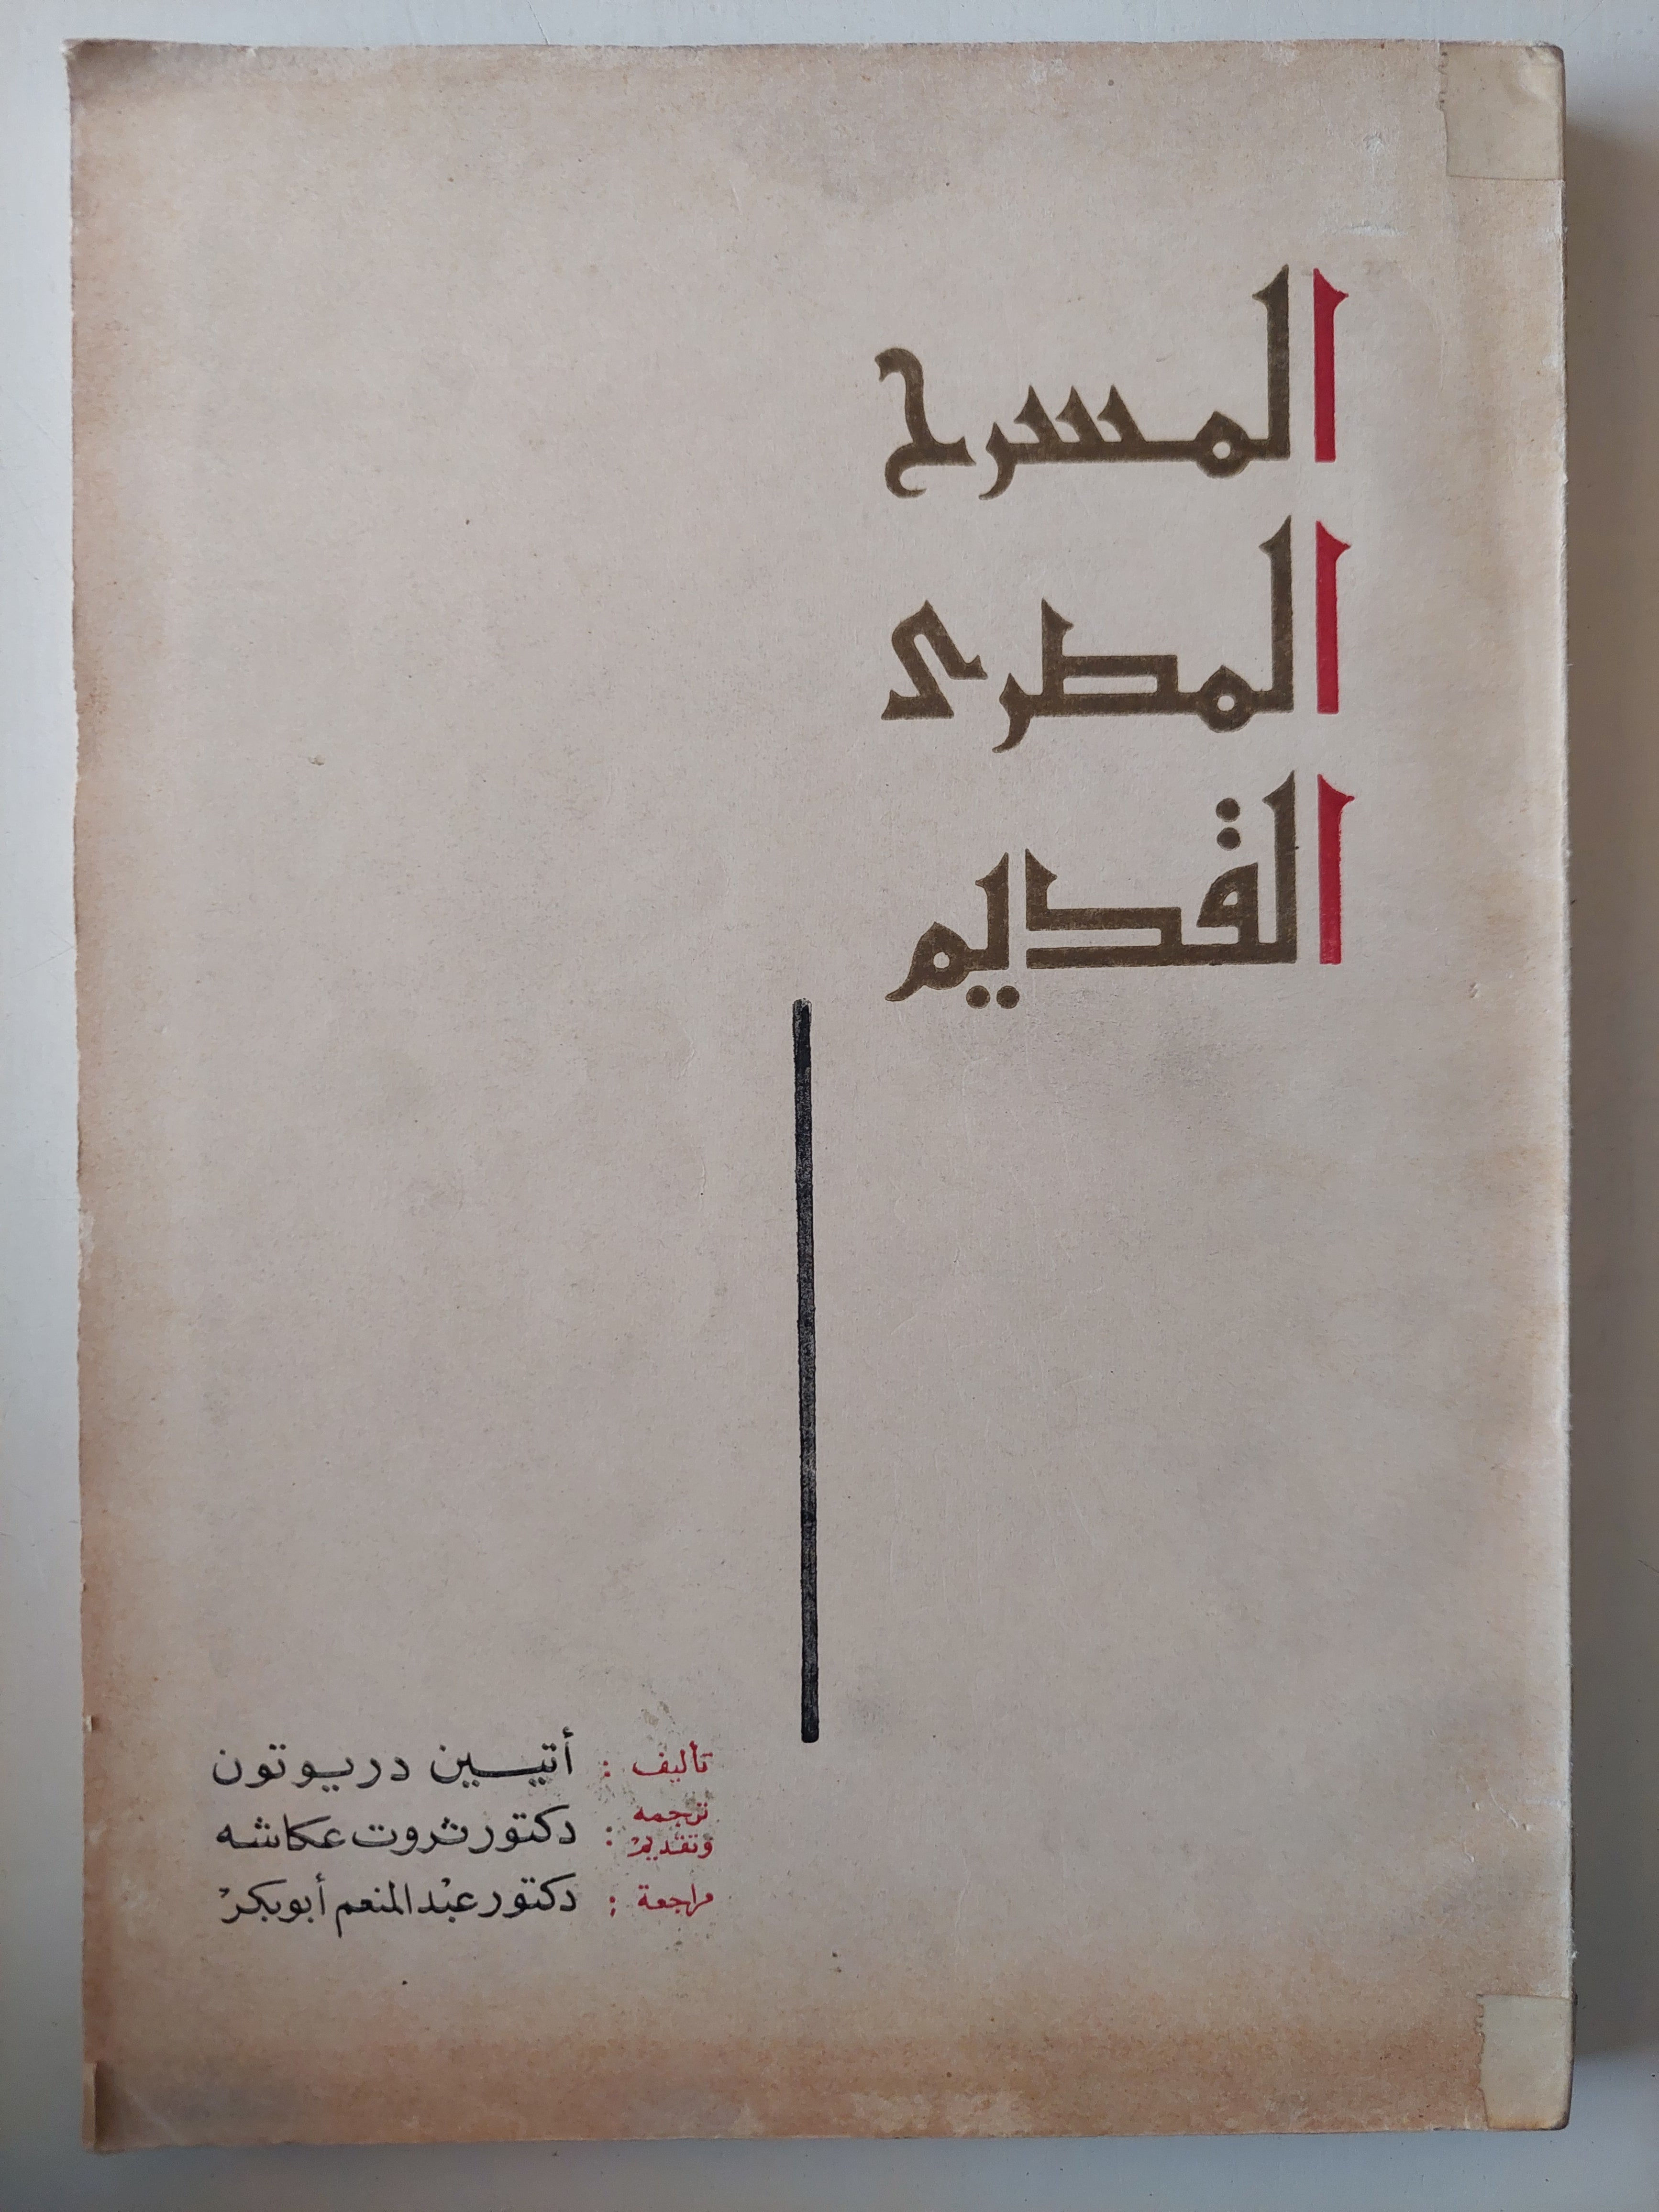 المسرح
المصرى
القديم
تأليف : أتيسين دريوتون
ترجمه وتقديم : دكتور ثروت عكاشه
مراجعة : دكتور عبد المنعم أبو بكر